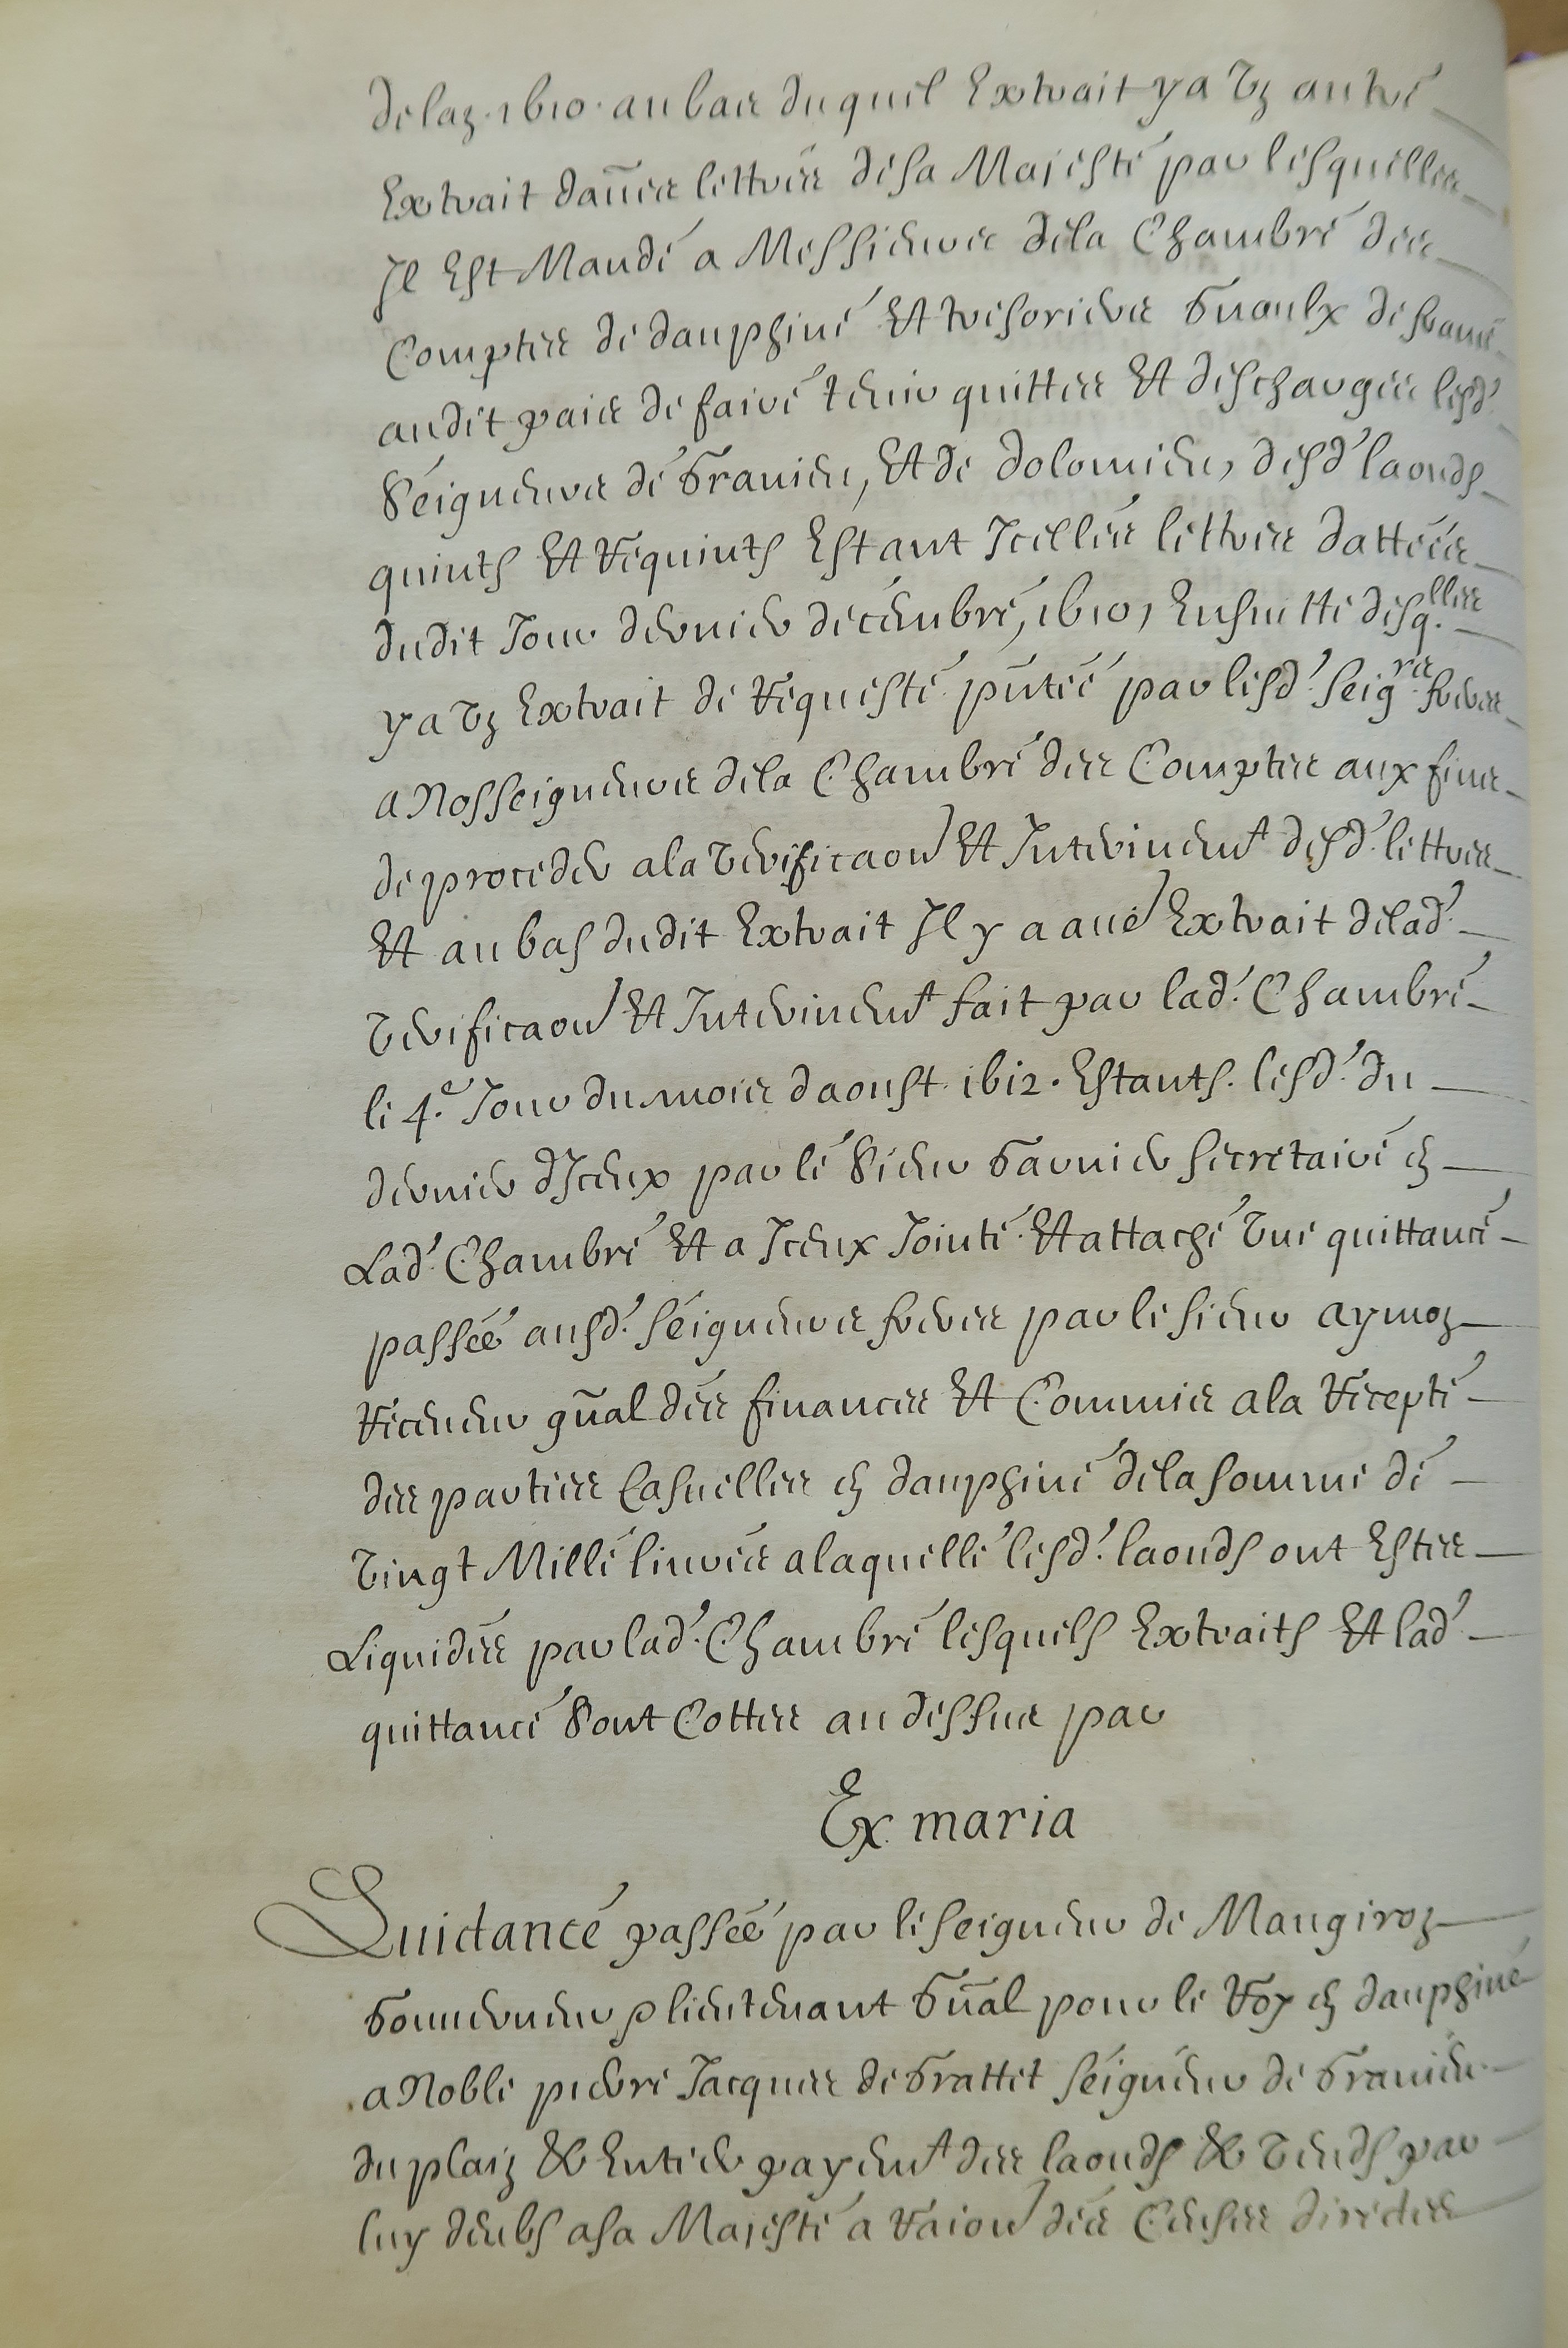 de laz. 1610. au bas du quel Extrait y a Vz autre
Extrait dau̅es lettres de sa Majesté par lesquelles
Il Est Mandé a Messieurs de la Chambre des
Comptes de dauphiné Et tresoriers Gn̅aulx de france
audit païs de faire tenir quittes Et deschargés lesd.
Seigneurs de Granieu, Et de Dolomieu, desd. laouds
quints Et Requints Estant Icelles lettres dattées
dudit Jour dernier décembre, 1610, Ensuitte desq.lles
y a Vz Extrait de Requeste pn̅tée par lesd. Seig.rs freres
a Nosseigneurs de la Chambre des Comptes aux fins
de proceder a la Verificaon Et Interinem.t desd. lettres
Et au bas dudit Extrait Il y a aué Extrait de lad.
Verificaon Et Interinem.t fait par lad. Chambre
le 4.e Jour du mois daoust 1612. Estants lesd. du
dernier d'Iceux par le Sieur Garnier Secretaire en
Lad. Chambre Et a Iceux Jointe Et attaché Vne quittance
passée ausd. Seigneurs freres par le sieur aymoz
Receueur gn̅al des finances Et Commis a la Recepte
des parties Casuelles en dauphiné de la somme de
Vingt Mille liures a laquelle lesd. laouds ont Estes
Liquidés par lad. Chambre lesquels Extraits Et lad.
quittance Sont Cottes au dessus par
Ex maria
Quictance passée par le Seigneur de Maugiroz
Gouuerneur p lieutenant Gn̅al pour le Roy en dauphiné
a Noble pierre Jacques de Grattet Seigneur de Granieu
du plaiz & Entier payem.t des laouds & Vends par
luy deubs a sa Majesté a Raion des Censes directes